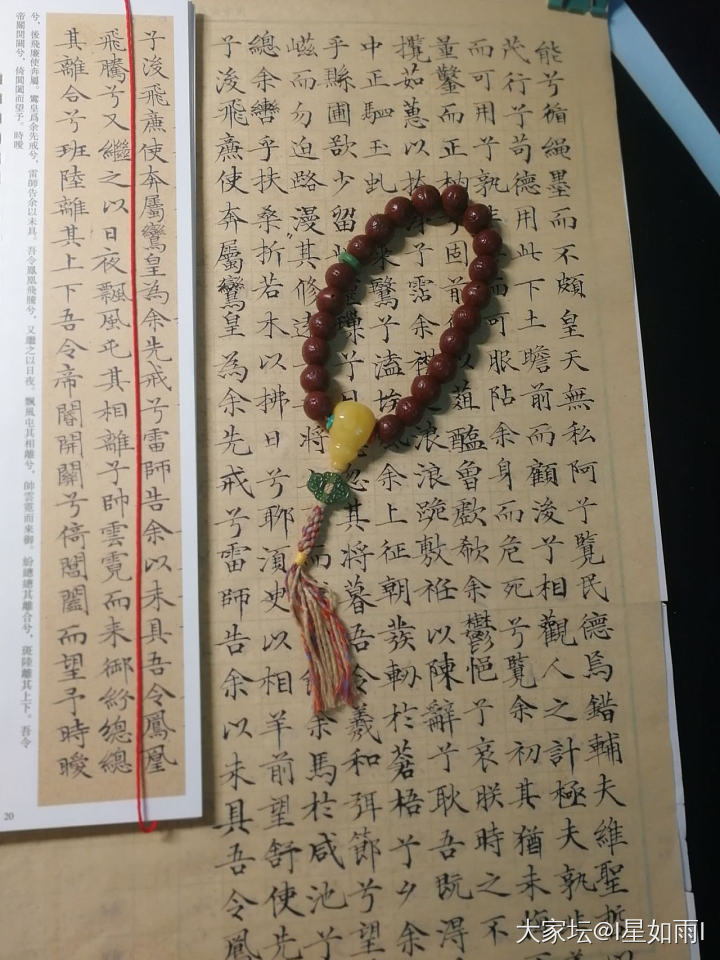 能兮循繩墨而不頗皇天無私阿兮覽民德焉錯輔夫維聖哲以
茂行兮苟德用此下土瞻前而顧後兮相觀人之計極夫孰非
而可用兮孰非而可服阽余身而危死兮覽余初其猶未悔
量鑿而正枘兮固前以菹醢曾歔欷余鬱悒兮哀朕時之不
攬茹蕙以掩涕兮霑余襟浪浪跪敷衽以陳辭兮耿吾既得
中正駟玉虬乘鷖兮溘埃風余上征朝發軔於蒼梧兮夕余
乎縣圃欲少留此瑣兮日忽其將暮吾令羲和弭節兮望
嵫而勿迫路漫〻其修遠將而余馬於咸池兮
總余轡乎扶桑折若木以拂日兮聊須臾以相羊前望舒使先
兮後飛廉使奔屬鸞皇為余先戒兮雷師告余以未具吾令鳳
兮後飛廉使奔屬鸞皇為余先戒兮雷師告余以未具吾令鳳凰
飛騰兮又繼之以日夜飄風屯其相離兮帥雲霓而來御紛總總
其離合兮班陸離其上下吾令帝閽開關兮倚閶闔而望予時曖
兮，後飛廉使奔屬。鸞皇爲余先戒兮，雷師告余以未具。吾令鳳凰飛騰兮，又繼之以日夜。飄風屯其相離兮，帥雲霓而來御。紛總總其離合兮，斑陸離其上下。吾令
帝閽開關兮，倚閶闔而望予。時曖
20
大家坛@l星如雨l